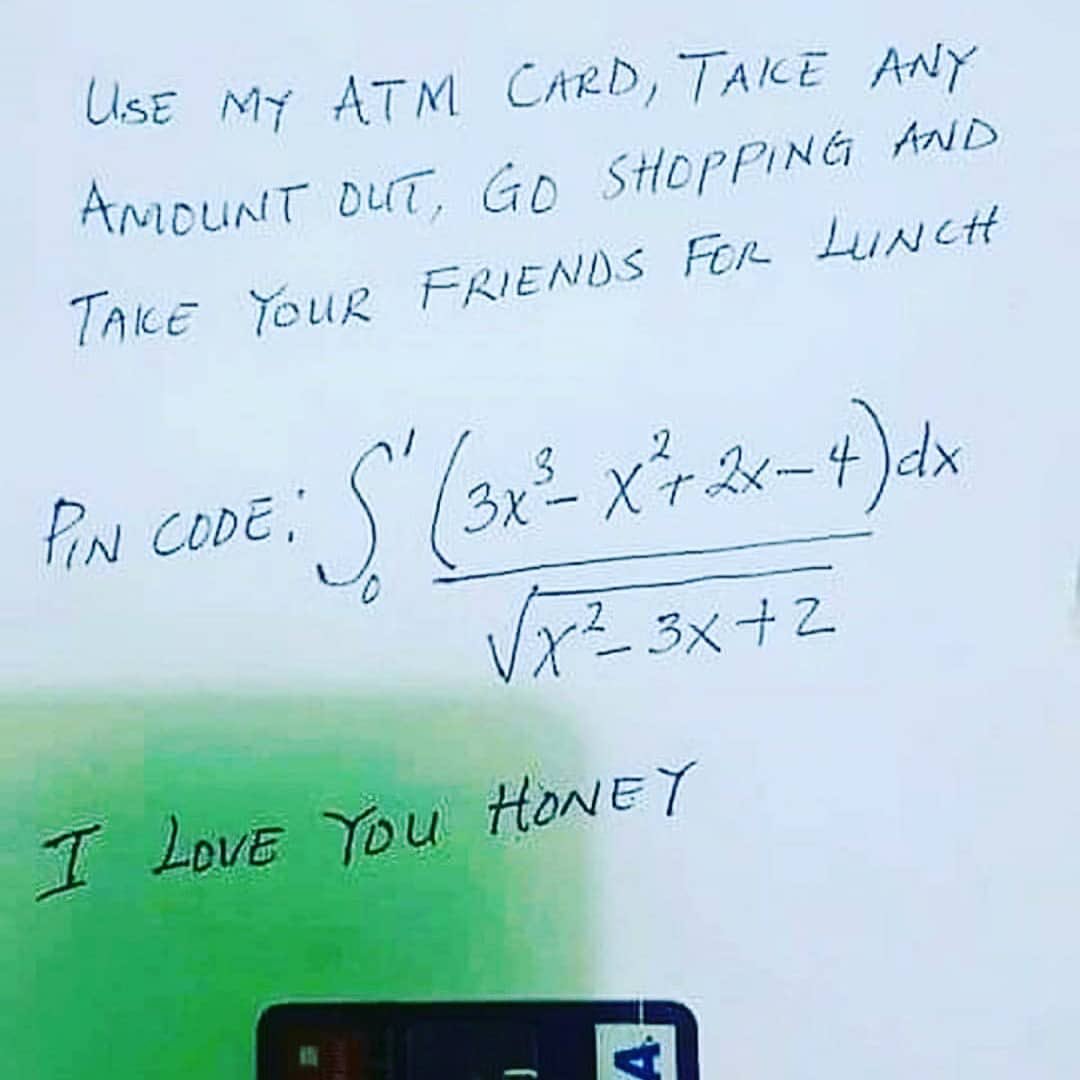 USE MY ATM CARD, TAKE ANY
AMOUNT OUT, GO SHOPPING AND
TAKE YOUR FRIENDS FOR LUNCH
PIN CODE: ∫₀¹ (3x³ - x² + 2x - 4)dx / √x² - 3x + 2
I LOVE YOU HONEY
A